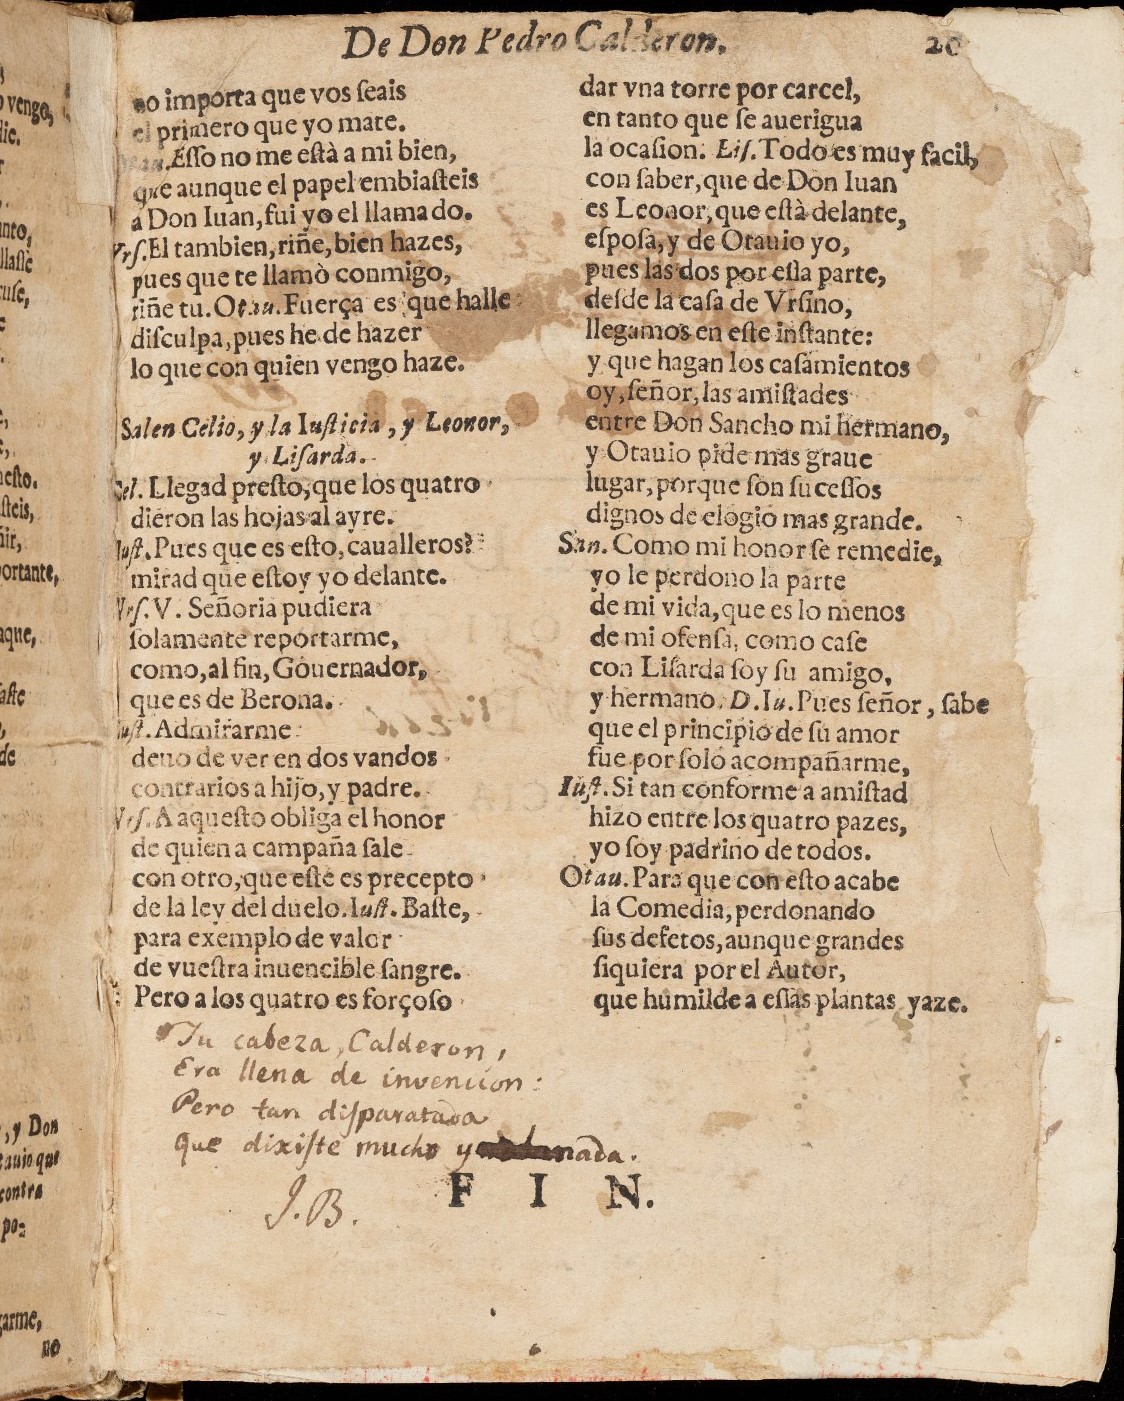 De Don Pedro Calderon.
20
no importa que vos ſeais
el primero que yo mate.
Eſſo no me eſtà a mi bien,
que aunque el papel embiaſteis
a Don Iuan, fui yo el llamado.
Vrſ. El tambien, riñe, bien hazes,
pues que te llamò conmigo,
riñe tu. Otau. Fuerça es que halle
diſculpa, pues he de hazer
lo que con quien vengo haze.
Salen Celio, y la Iuſticia, y Leonor,
y Liſarda.
Cel. Llegad preſto, que los quatro
dieron las hojas al ayre.
Iuſt. Pues que es eſto, caualleros?
mirad que eſtoy yo delante.
Vrſ. V. Señoria pudiera
ſolamente reportarme,
como, al fin, Gouernador,
que es de Berona.
Iuſt. Admirarme
deuo de ver en dos vandos
contrarios a hijo, y padre.
Vrſ. A aqueſto obliga el honor
de quien a campaña ſale
con otro, que eſte es precepto
de la ley del duelo. Iuſt. Baſte,
para exemplo de valor
de vueſtra inuencible ſangre.
Pero a los quatro es forçoſo
Tu cabeza, Calderon,
Era llena de invencion:
Pero tan diſparatada
Que dixiſte mucho y nada.
J. B.
dar vna torre por carcel,
en tanto que ſe auerigua
la ocaſion. Liſ. Todo es muy facil,
con ſaber, que de Don Iuan
es Leonor, que eſtà delante,
eſpoſa, y de Otauio yo,
pues las dos por eſſa parte,
deſde la caſa de Vrſino,
llegamos en eſte inſtante:
y que hagan los caſamientos
oy, ſeñor, las amiſtades
entre Don Sancho mi hermano,
y Otauio pide mas graue
lugar, porque ſon ſuceſſos
dignos de elogio mas grande.
San. Como mi honor ſe remedie,
yo le perdono la parte
de mi vida, que es lo menos
de mi ofenſa, como caſe
con Liſarda ſoy ſu amigo,
y hermano. D. Iu. Pues ſeñor, ſabe
que el principio de ſu amor
fue por ſolo acompañarme,
Iuſt. Si tan conforme a amiſtad
hizo entre los quatro pazes,
yo ſoy padrino de todos.
Otau. Para que con eſto acabe
la Comedia, perdonando
ſus defetos, aunque grandes
ſiquiera por el Autor,
que humilde a eſſas plantas yaze.
F I N.
vengo,
, y Don
contra
garme,
no